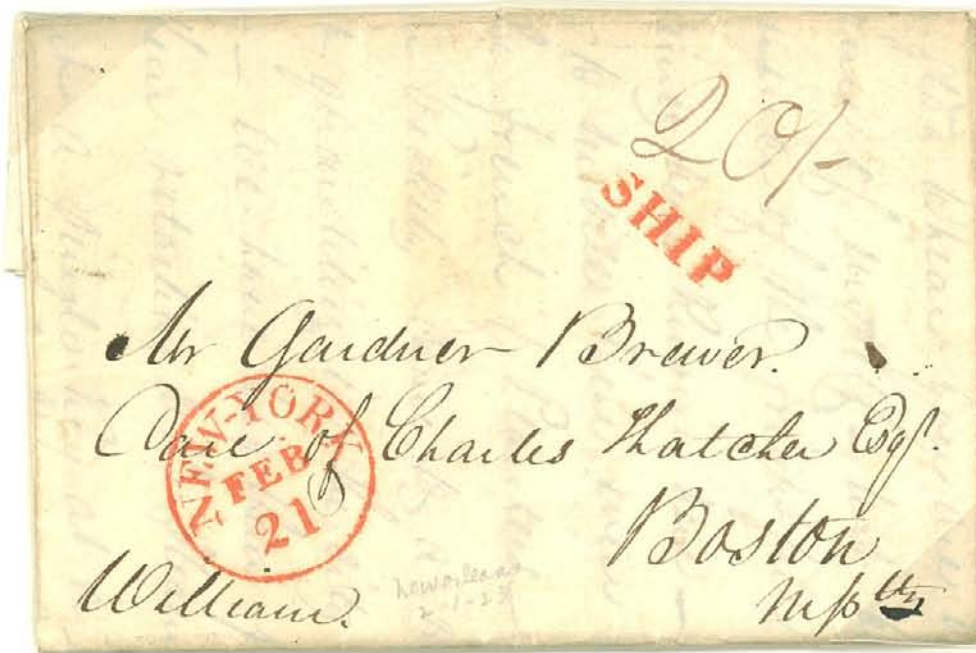 20/-
SHIP
Mr Gardner Brewer.
Care of Charles Thatcher Esqr.
NEW-YORK
FEB
21
Boston
William.
New orleans
2-1-23